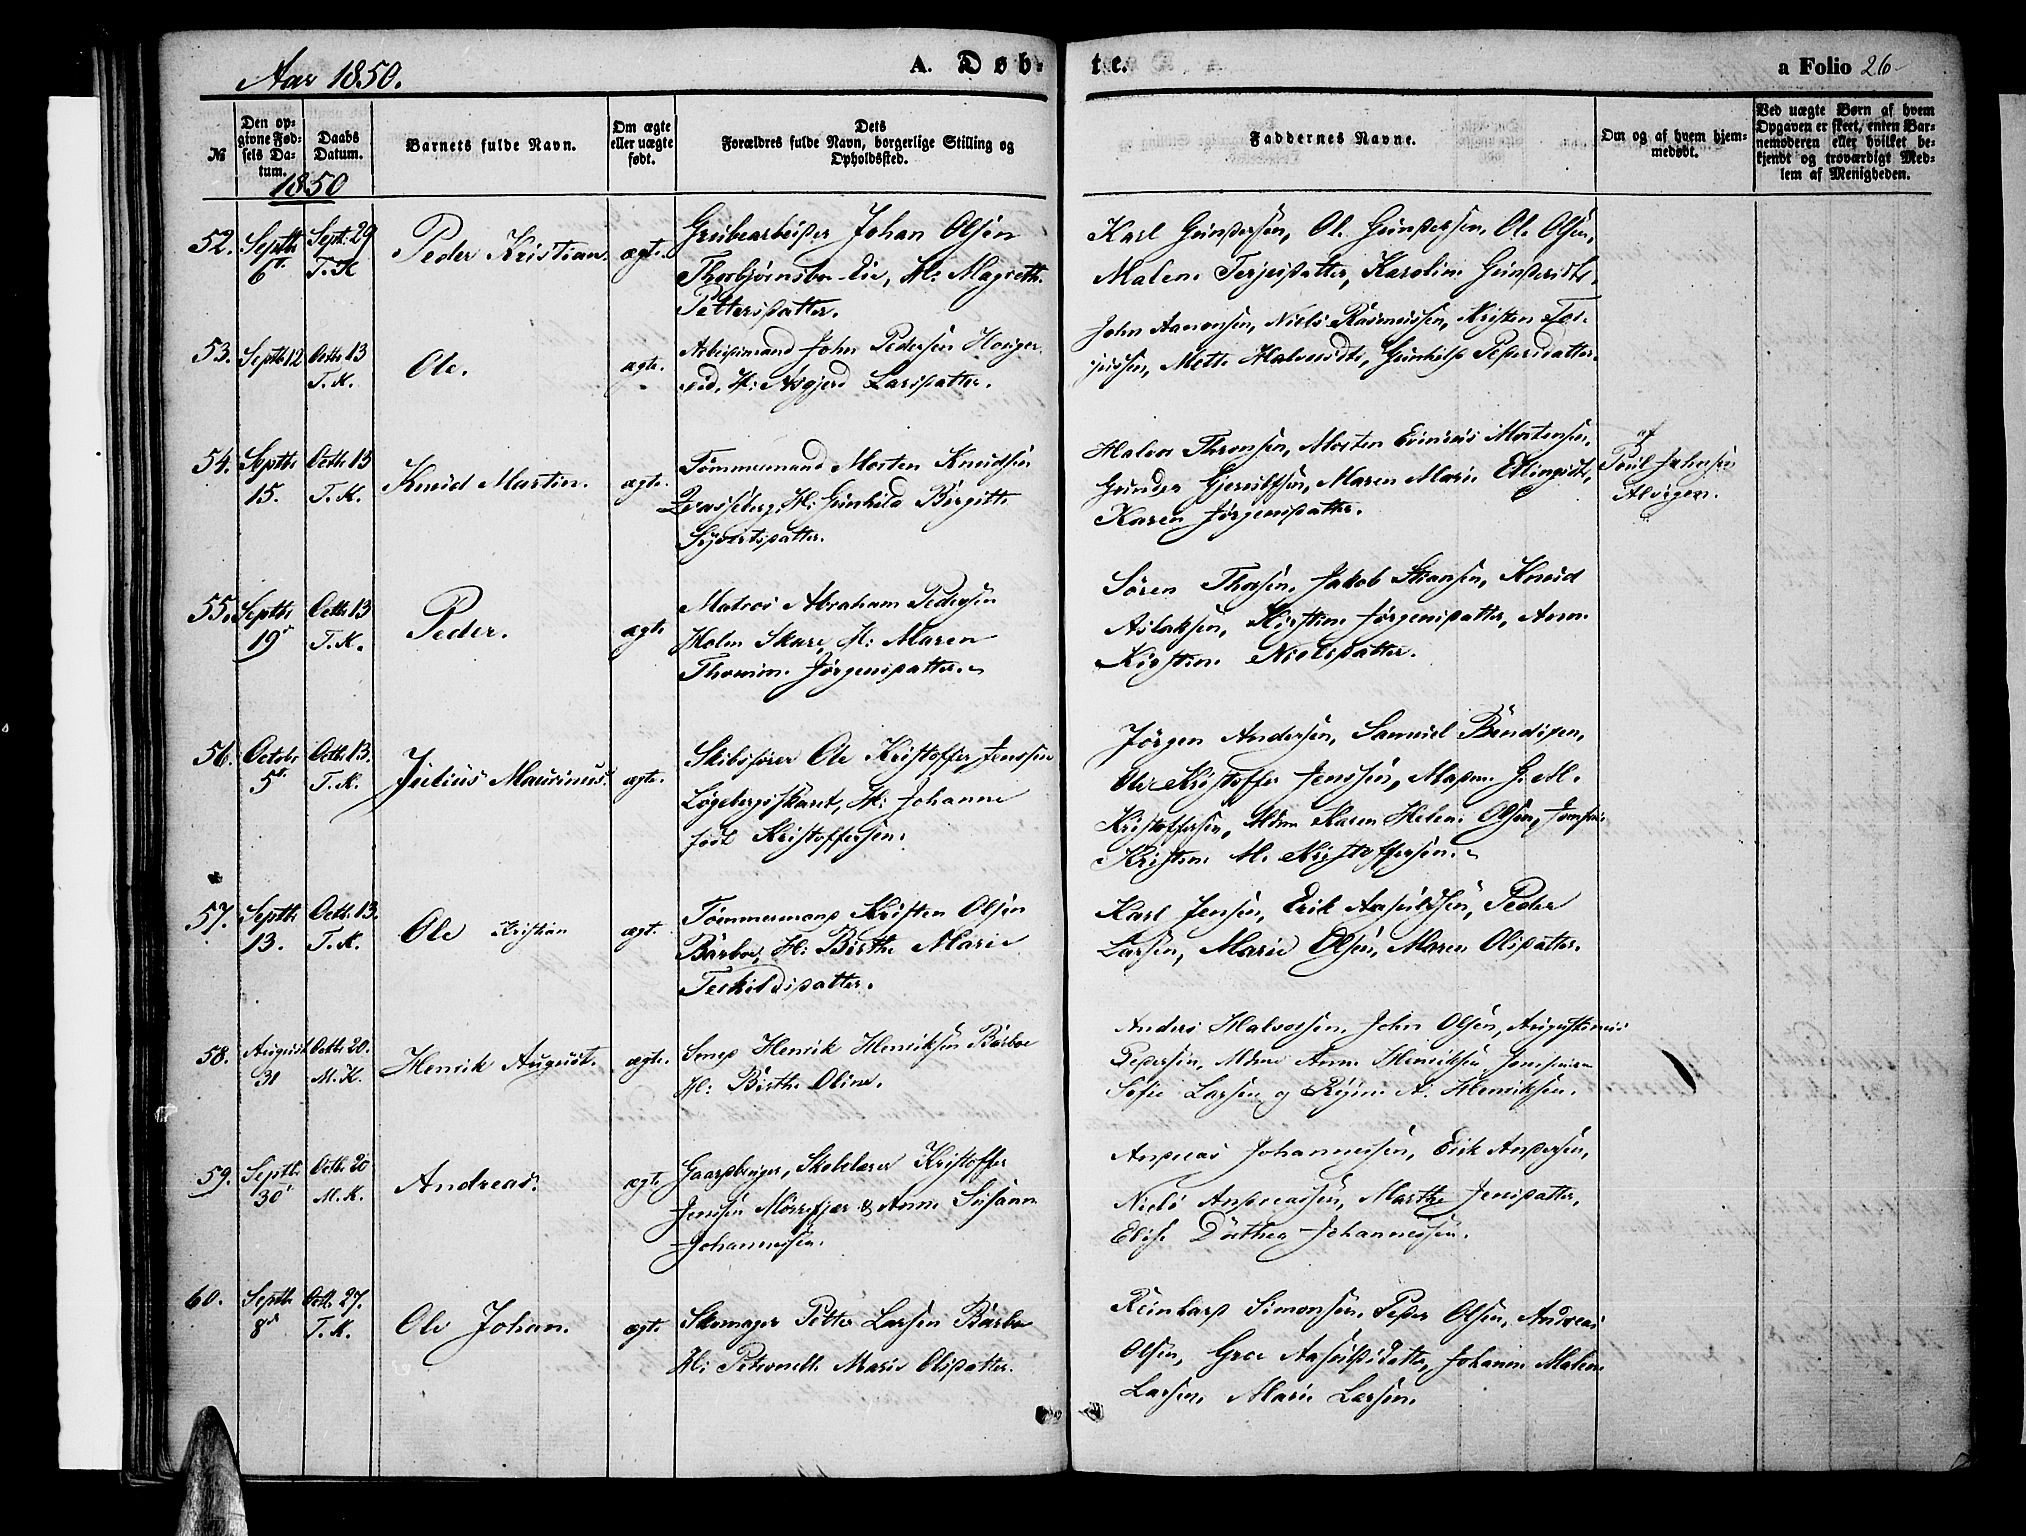 Aar 1850.
A. Døb-
te.
a Folio 26
№
Den op-
givne Fød-
sels Da-
tum.
Daabs
Datum.
Barnets fulde Navn.
Om ægte
eller uægte
født.
Dets
Forældres fulde Navn, borgerlige Stilling og
Opholdssted.
Faddernes Navne.
Om og af hvem hjem-
medøbt.
Ved uægte Børn af hvem
Opgaven er skeet, enten Bar-
nemoderen eller hvilket be-
kjendt og troværdigt Med-
lem af Menigheden.
1850
52. Septbr 6te Sept: 29 T. K Peder Kristian. ægte.
Grubearbeider Johan Olsen
Thorbjørnsbo H: Magrethe
Pettersdatter.
Karl Gundersen, Ole Gundersen, Ole Olsen,
Malene Terjesdatter, Karoline
53. Septbr 12 Octbr 13 T. K. Ole. ægte.
Arbeidsmand John Pedersen
H: Asgjerd Larsdatter.
John Aanonsen, Niels Rasmussen, Kristen
Mette Gunhild Pedersdatter.
54. Septbr 15. Octbr 13 T. K. Knud Martin. ægte.
Tømmermand Morten Knudsen
H: Gunhild Birgitte
Syvertsdatter.
Morten Mortensen,
Gunder Maren Marie
Karen Jørgensdatter.
af
Poul Johnsen
55. Septbr 19de Octbr 13 T. K. Peder. ægte
Matros Abraham Pedersen
Holm Skare, H: Maren
Jørgensdatter.
Søren Thorsen, Jakob Knud
Aslaksen, Kirstine Jørgensdatter, Anne
Kirstine Nielsdatter.
56. Octobr 5te Octbr 13. T. K. Julius Maurinus. ægte.
Skibsfører Ole Kristoffer Jenssen
Løgebergsskaret, H: Johanne
født Kristoffersen.
Jørgen Andersen, Samuel Bendixen,
Ole Kristoffer Jenssen, Madm. G. M.
Kristoffersen, Mdm Karen Helene Olsen, Jomfrue
Kristine M. Kristoffersen.
57. Septbr 13. Octbr 13. T. K. Ole Kristian ægte.
Tømmermand Kristen Olsen
Barboe, H: Birthe Marie
Terkildsdatter.
Karl Jensen, Erik Peder
Larsen, Marie Olsen, Maren Olsdatter.
58. August 31 Octbr 20. M. K. Henrik August. ægte.
Smed Henrik Henriksen Barboe
H: Birthe Oline.
Anders Halvorsen, John Olsen, Augustinus
Pedersen, Mdme Anne Henriksen
Sofie Larsen og A. Henriksen.
59. Septbr 30te Octbr 20 M. K. Andreas. ægte
Gaardbruger, Kristoffer
Jensen & Anne Susanne
Johannesen.
Andreas Johannesen, Erik Andersen,
Niels Andreassen, Marthe Jensdatter,
Elise Dorthea Johannessen.
60. Septbr 8de Octbr 27. T. K. Ole Johan. ægte.
Skomager Petter Larsen Barboe
H: Petronelle Marie Olsdatter.
Reinhard Simonsen, Peder Olsen, Andreas
Olsen, Johanne Malene
Larsen, Marie Larsen.